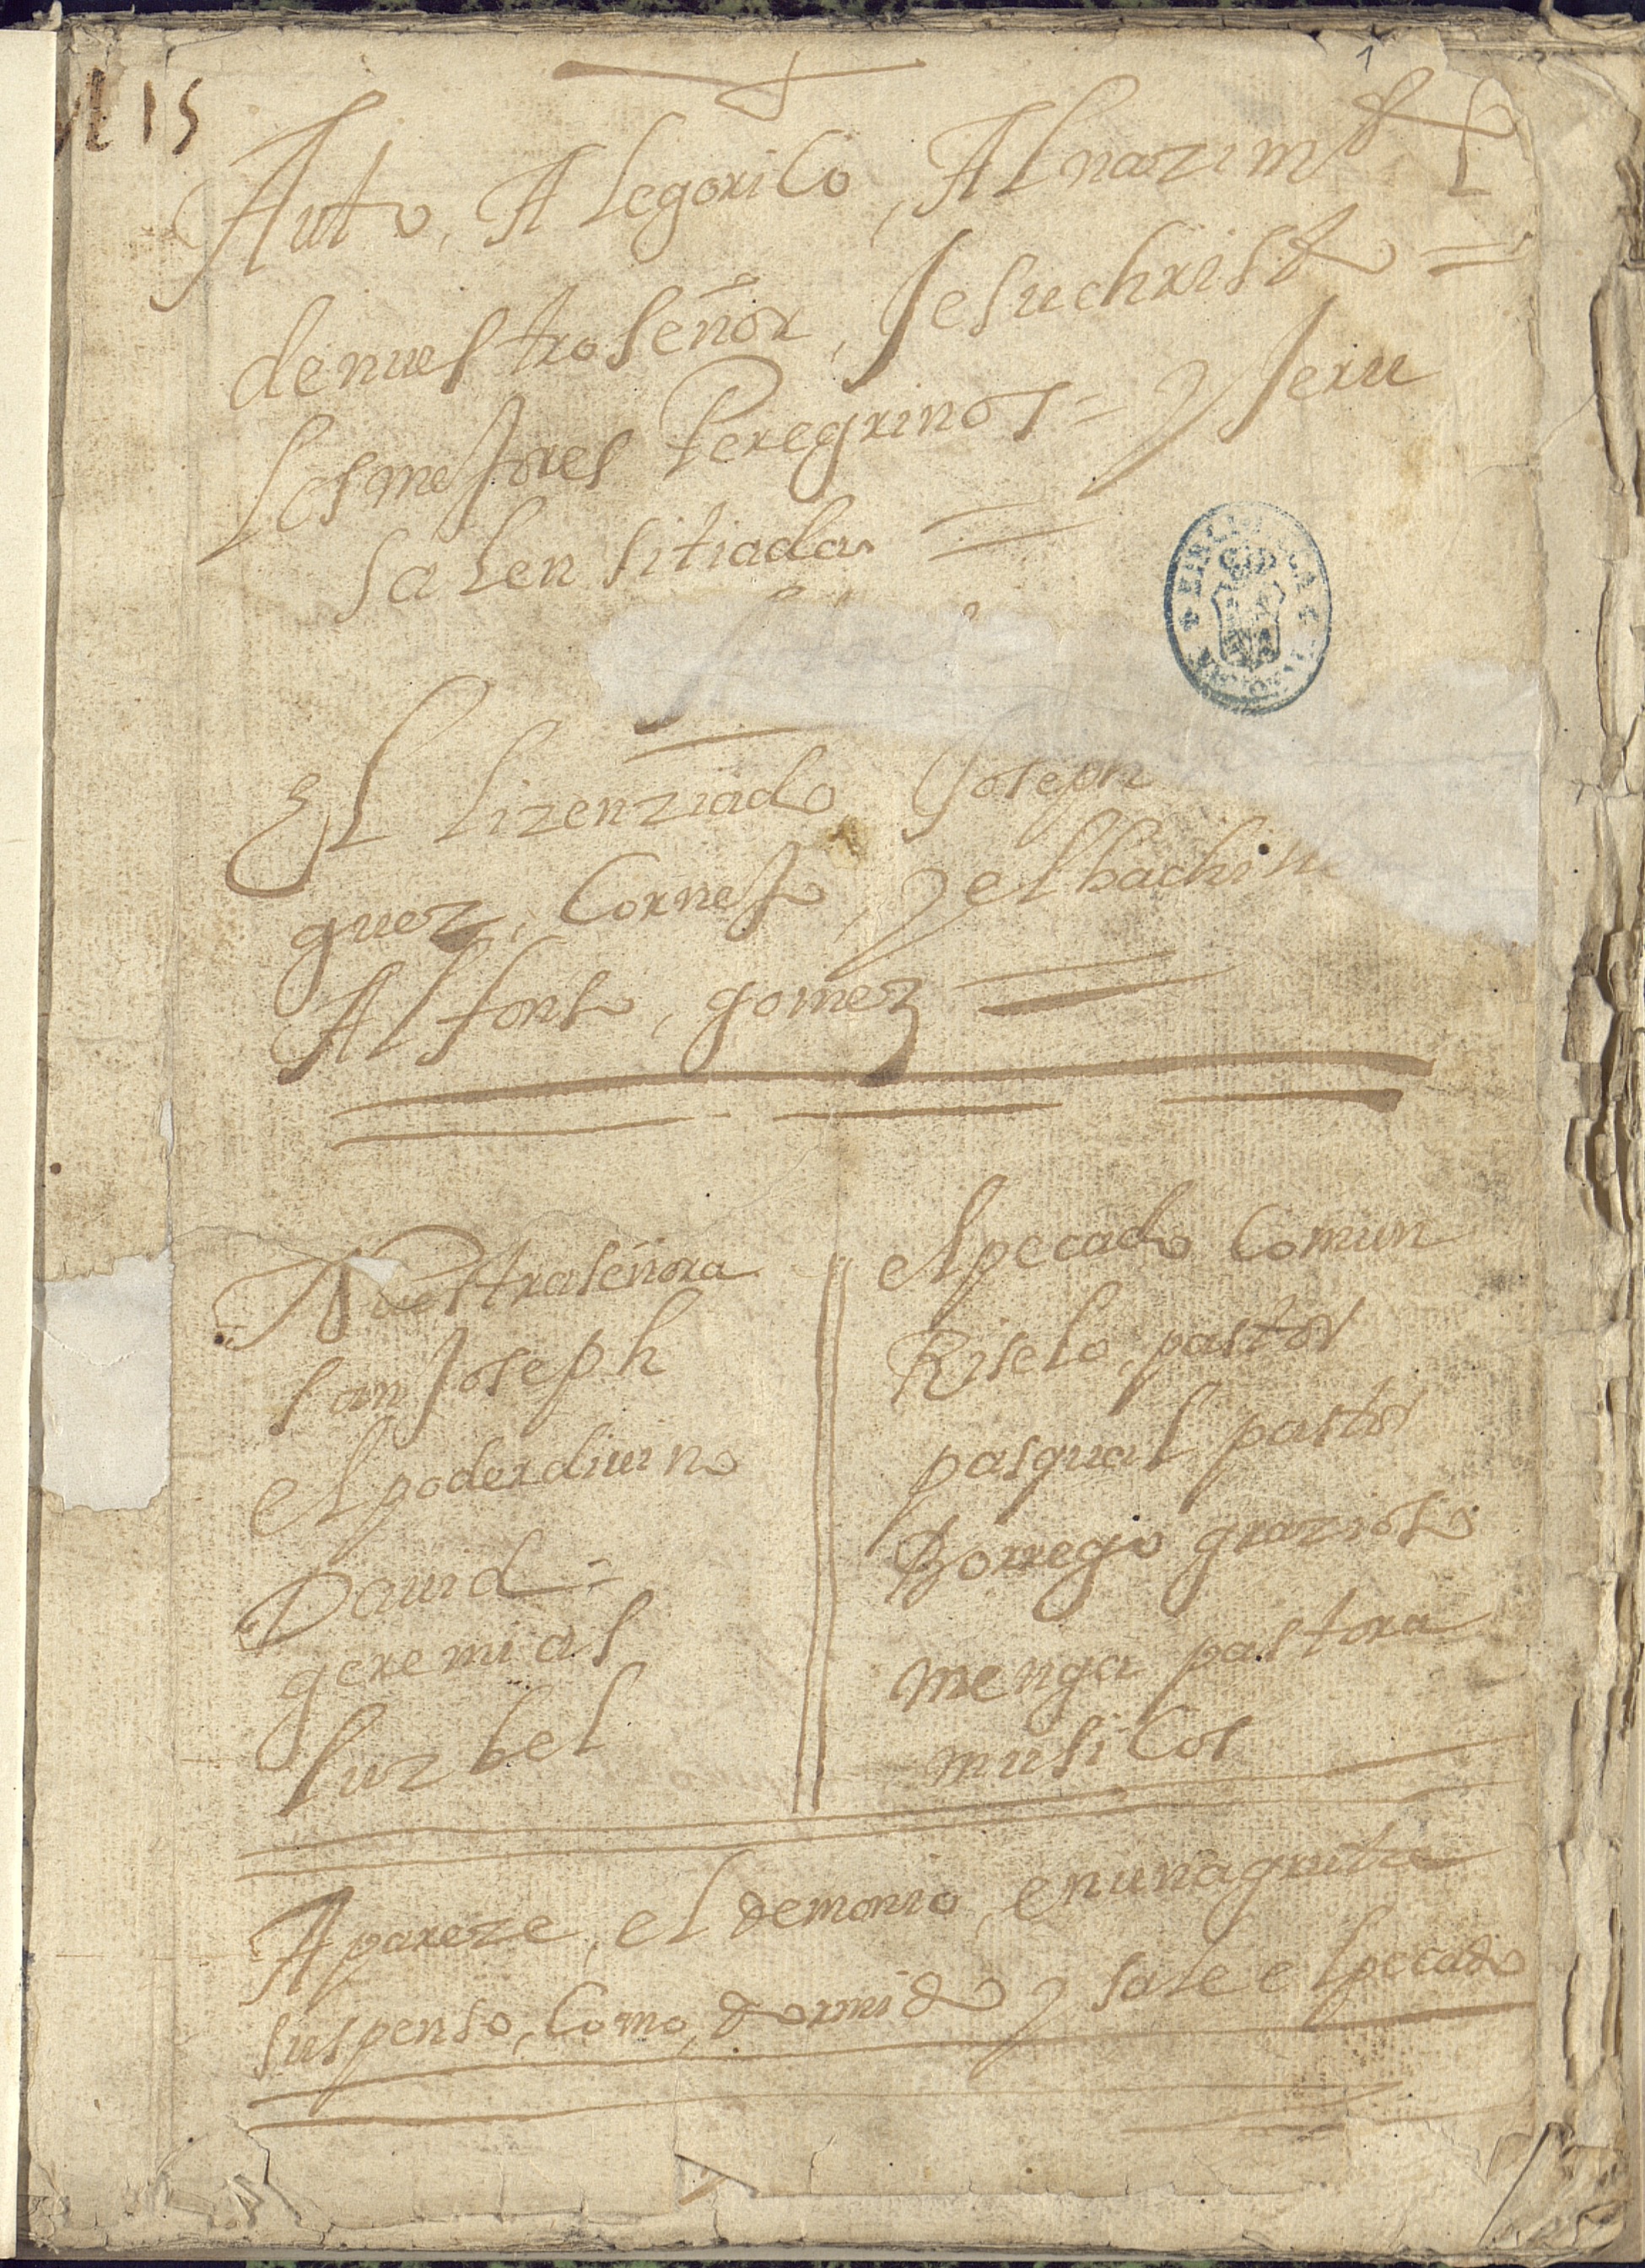 15
1
Auto, Alegorico, Al nazim^to
de nuestro señor, Jesuchristo =
los mejores Peregrinos = y Jeru
salen sitiada =
El lizenziado Joseph
guez, Cornejo, y el bachiller
Alfonso, gomez
Nuestra señora
san Joseph
el poder diuino
Dauid =
geremias
luzbel
el pecado Comun
Riselo, pastor
pasqual pastor
Borrego grazioso
menga pastora
musicos
Apareze, el demonio, en una gruta
suspenso, Como, dormido y sale el pecado